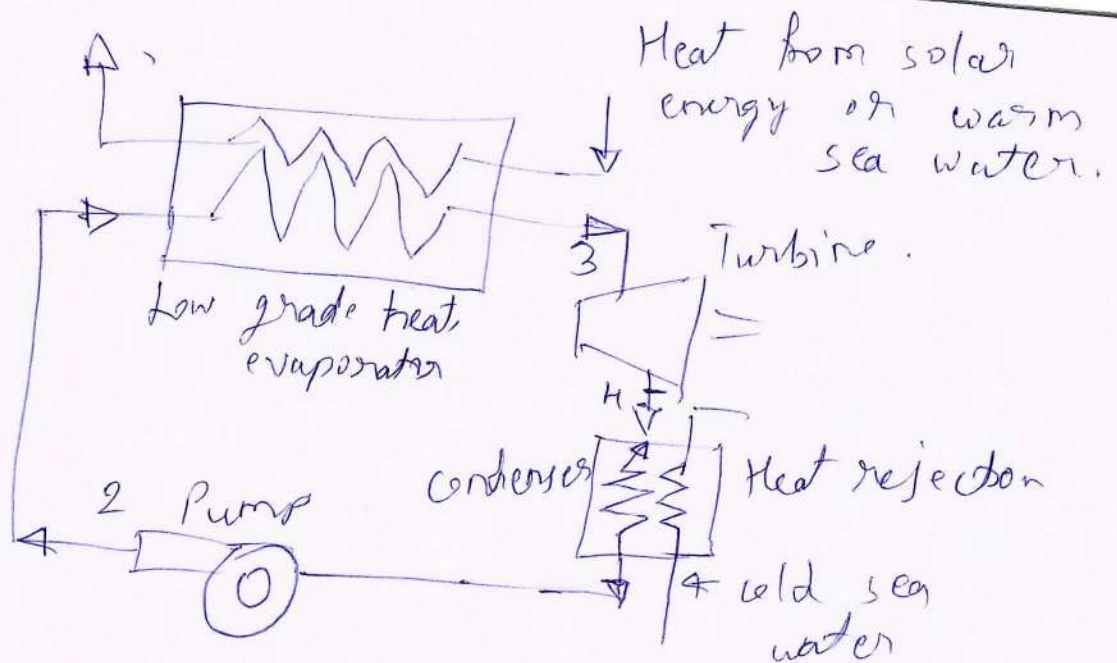 Heat from solar
energy or warm
sea water.
3
Turbine.
Low grade heat,
evaporator
4
condenser
Heat rejection
2
Pump
cold sea
water